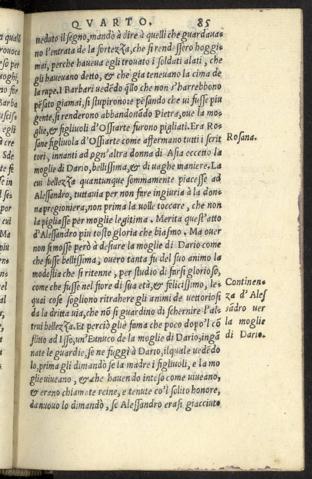 QVARTO. 85
neduto il segno, mandò à dire à quelli che guardaua
no l'entrata de la fortezza, che si rendessero hoggi
mai, perche haueua egli trouato i soldati alati, che
gli haueuano detto, & che già teneuano la cima de
la rupe. I Barbari uedēdo q̄llo che non s'harrebbono
pēsato giamai, si stupirono e pēsando che ui fusse piu
gente, si renderono abbandonādo Pietra, oue la mo-
glie, & figliuoli d'Ossiarte furono pigliati. Era Ros
sane figliuola d'Ossiarte come affermano tutti i scrit
tori, innanti ad ogn'altra donna di Asia eccetto la
moglie di Dario, bellissima, & di uaghe maniere. La
cui bellezza quantunque sommamente piacesse ad
Alessandro, tuttauia per non fare ingiuria à la don-
na pregioniera, non prima la uolle toccare, che non
la pigliasse per moglie legitima. Merita quest'atto
d'Alessandro piu tosto gloria che biasmo. Ma ouer
non si mosse però à desiare la moglie di Dario come
che fusse bellissima, ouero tanta fu del suo animo la
modestia che si ritenne, per studio di farsi glorioso,
come che fusse nel fiore di sua età, & felicissimo, le
quai cose sogliono ritrahere gli animi de uettoriosi
da la dritta uia, che nō si guardino di schernire l'al-
trui bellezza. Et perciò glie fama che poco dopo'l cō
flitto ad Isso, un'Eunuco de la moglie di Dario, ingā
nate le guardie, se ne fuggì à Dario, ilquale uedēdo
lo, prima gli dimandò se la madre i figliuoli, e la mo
glie uiueano, & che hauendo inteso come uiueano,
& erano chiamate reine, e tenute co'l solito honore,
da nuouo lo dimandò, se Alessandro erasi giacciuto
Rosana.
Continen-
za d'Ales
sādro uer
la moglie
di Dario.